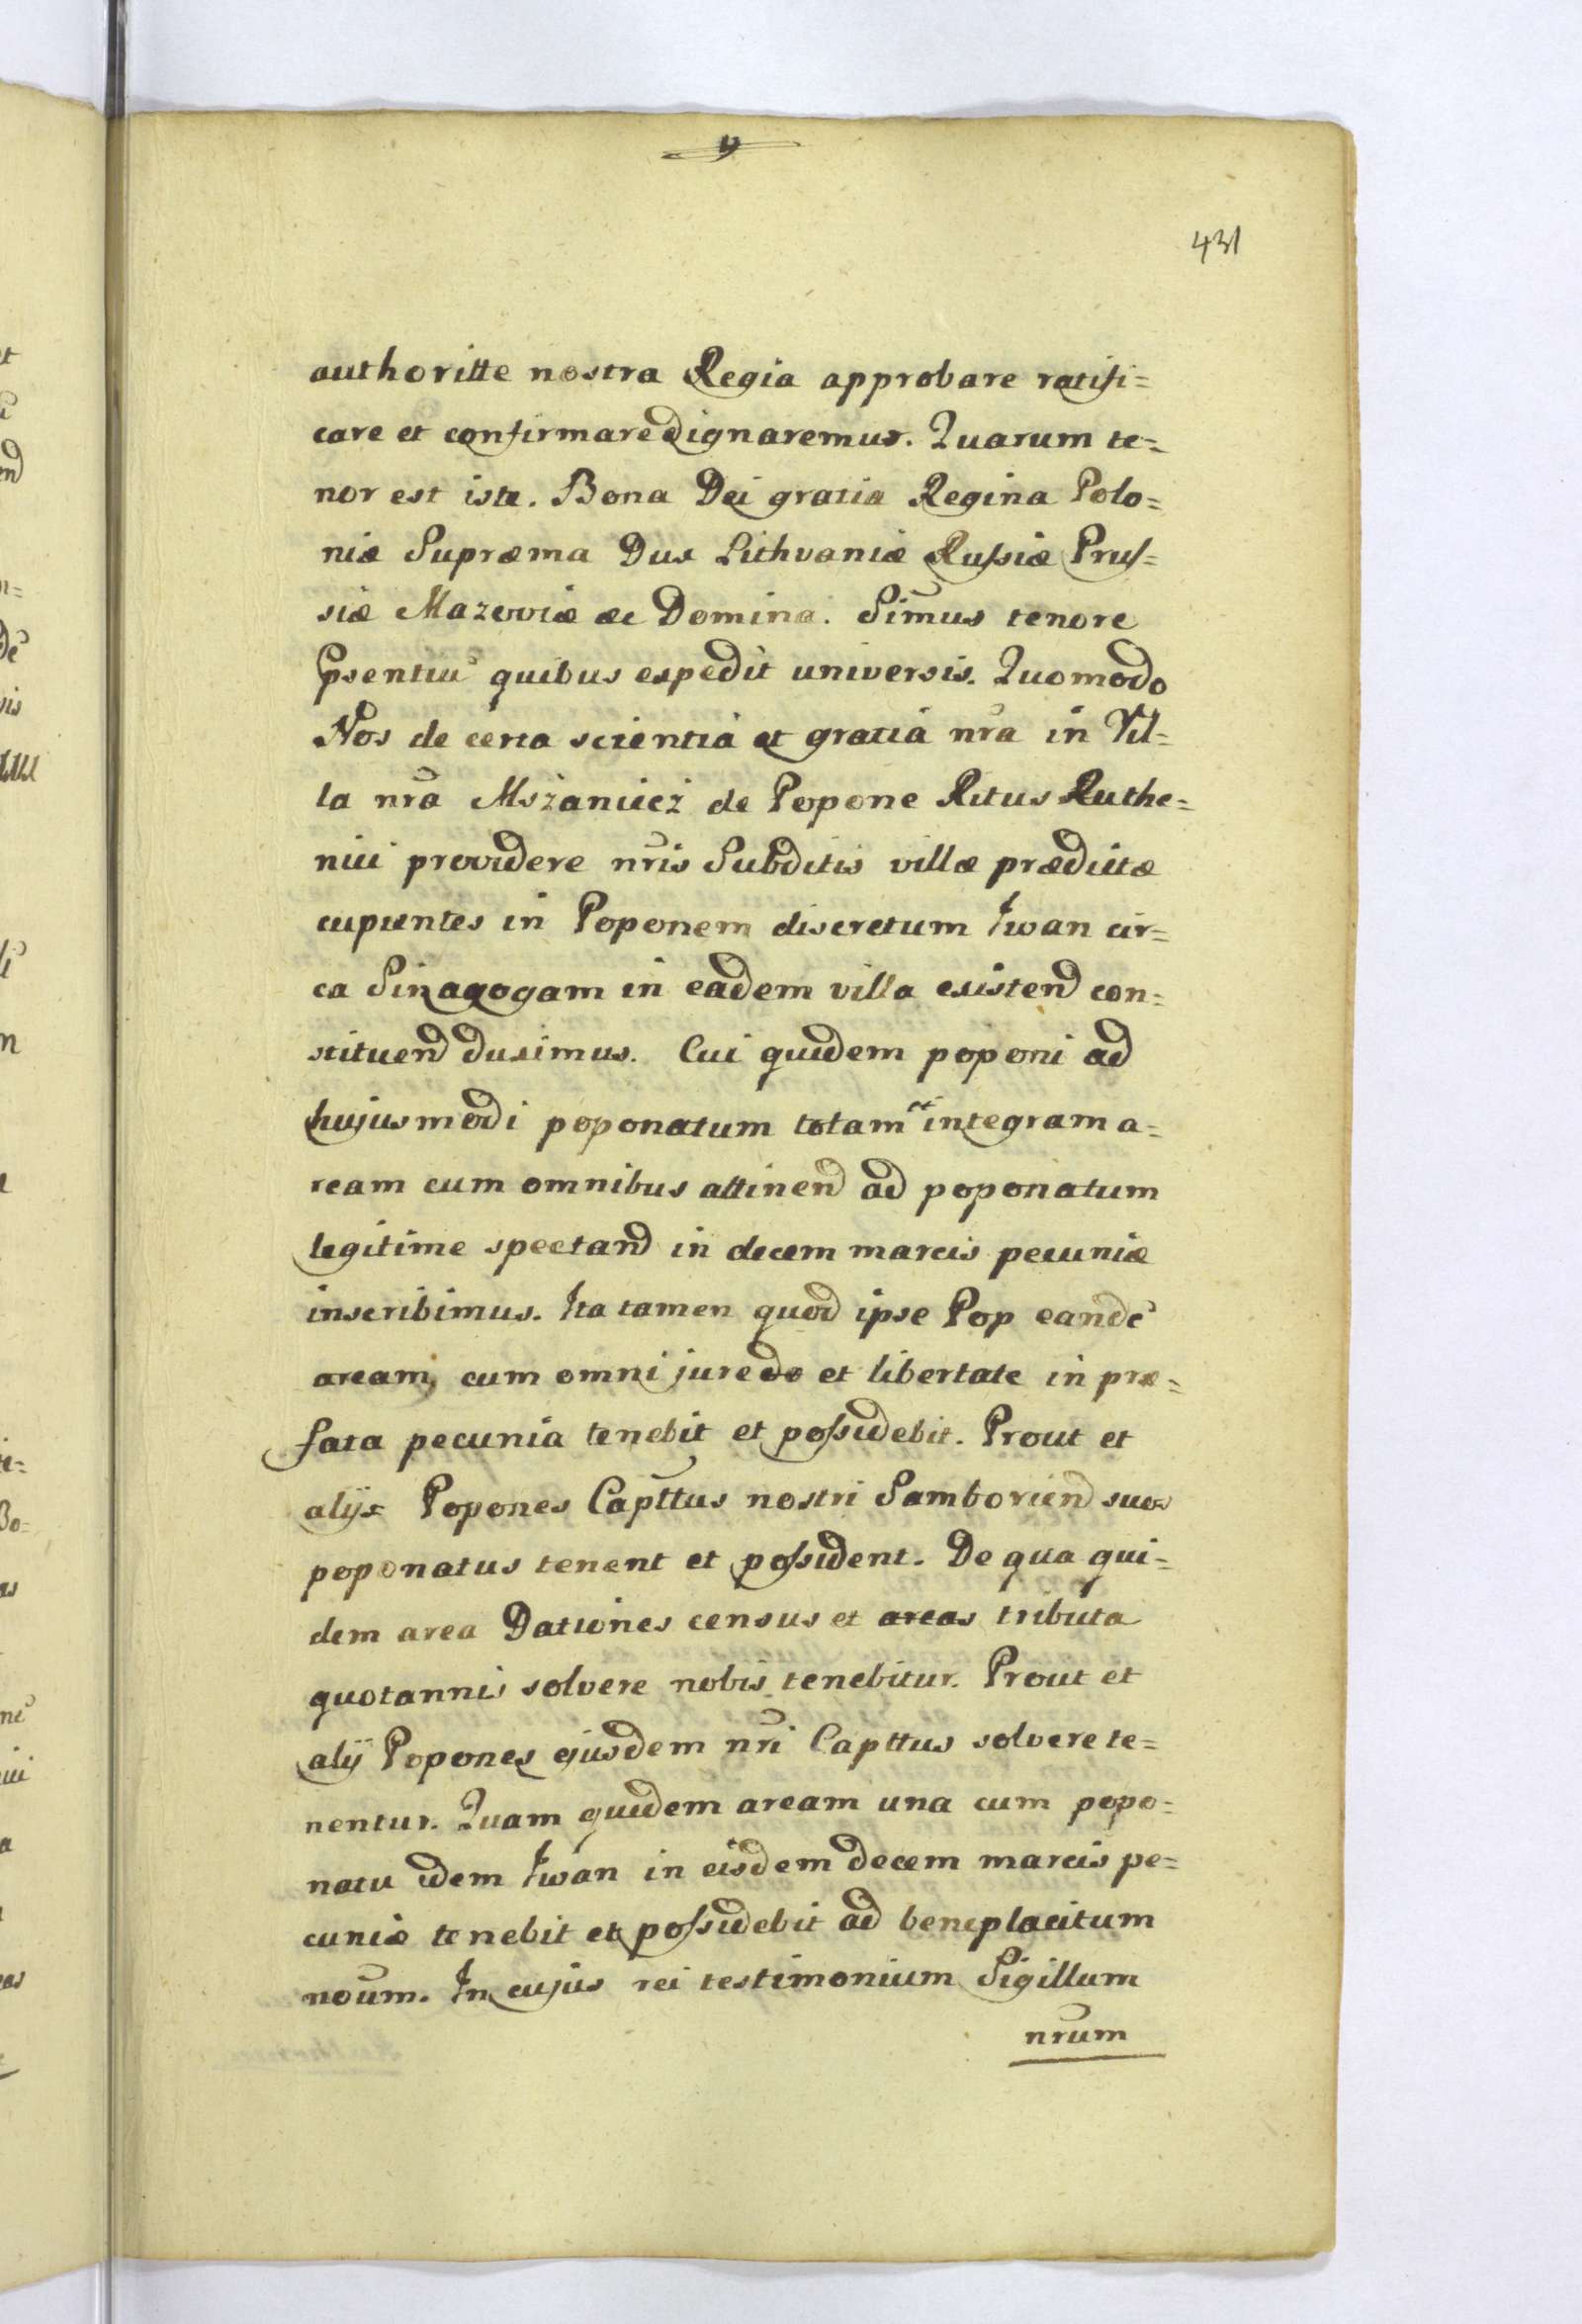 9
431
authoritte nostra Regia approbare ratifi=
care et confirmare dignaremur. Quarum te=
nor est iste. Bona Dei gratia Regina Polo=
niæ Supræma Dux Lithvaniæ Russiæ Prus=
siæ Mazoviæ æc Domina. Sim̃us tenore
p̃sentiũ quibus expedit universis. Quomodo
Nos de certa scientiâ et gratiâ nr̃a in Vil=
la nr̃a Mszaniiez de Popone Ritus Ruthe=
nici providere nr̃is Subditis villæ prædictæ
cupientes in Poponem discretum Iwan cir=
ca Sinagogam in eadem villa existend con=
stituend duximus. Cui quidem poponi ad
hujusmodi poponatum totam et integram a=
ream cum omnibus attinend ad poponatum
legitime spectand in decem marcis pecuniæ
inscribimus. Ita tamen quod ipse Pop eandẽ
aream, cum omni jure do et libertate in præ=
fata pecunia tenebit et possidebit. Prout et
alijs Popones Capt̃tus nostri Samboriend suos
poponatus tenent et possident. De qua qui=
dem area Dationes census et areas tributa
quotannis solvere nobis tenebitur. Prout et
alij Popones ejusdem nr̃i Capttus solvere te=
nentur. Quam quidem aream una cum popo=
natu idem Iwan in eisdem decem marcis pe=
cuniæ tenebit et possidebit ad beneplacitum
nõum. In cujus rei testimonium Sigillum
nr̃um